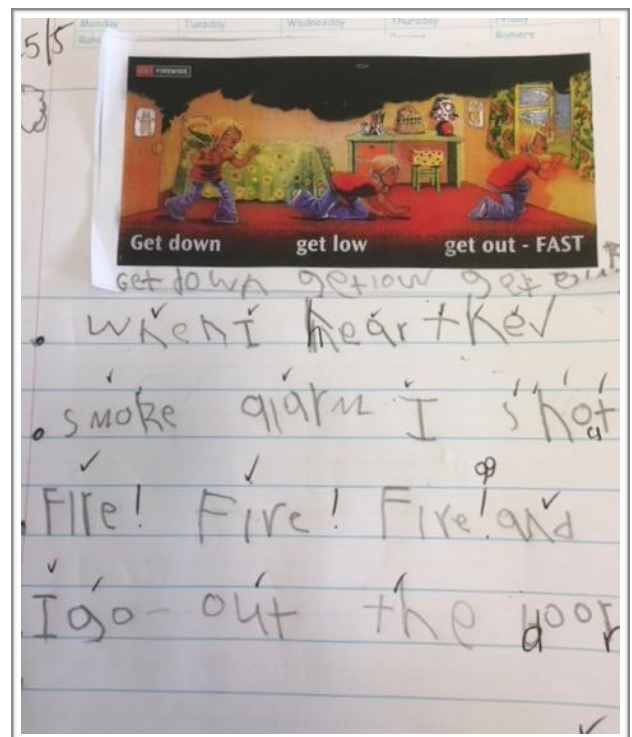 Monday Tuesday Wednesday Thursday Friday
Romere
5/5
GET FIREWISE
Get down get low get out - FAST
Get down getlow get out F
when I hear the
smoke alarm I shot
Fire! Fire! Fire! and
I go out the door